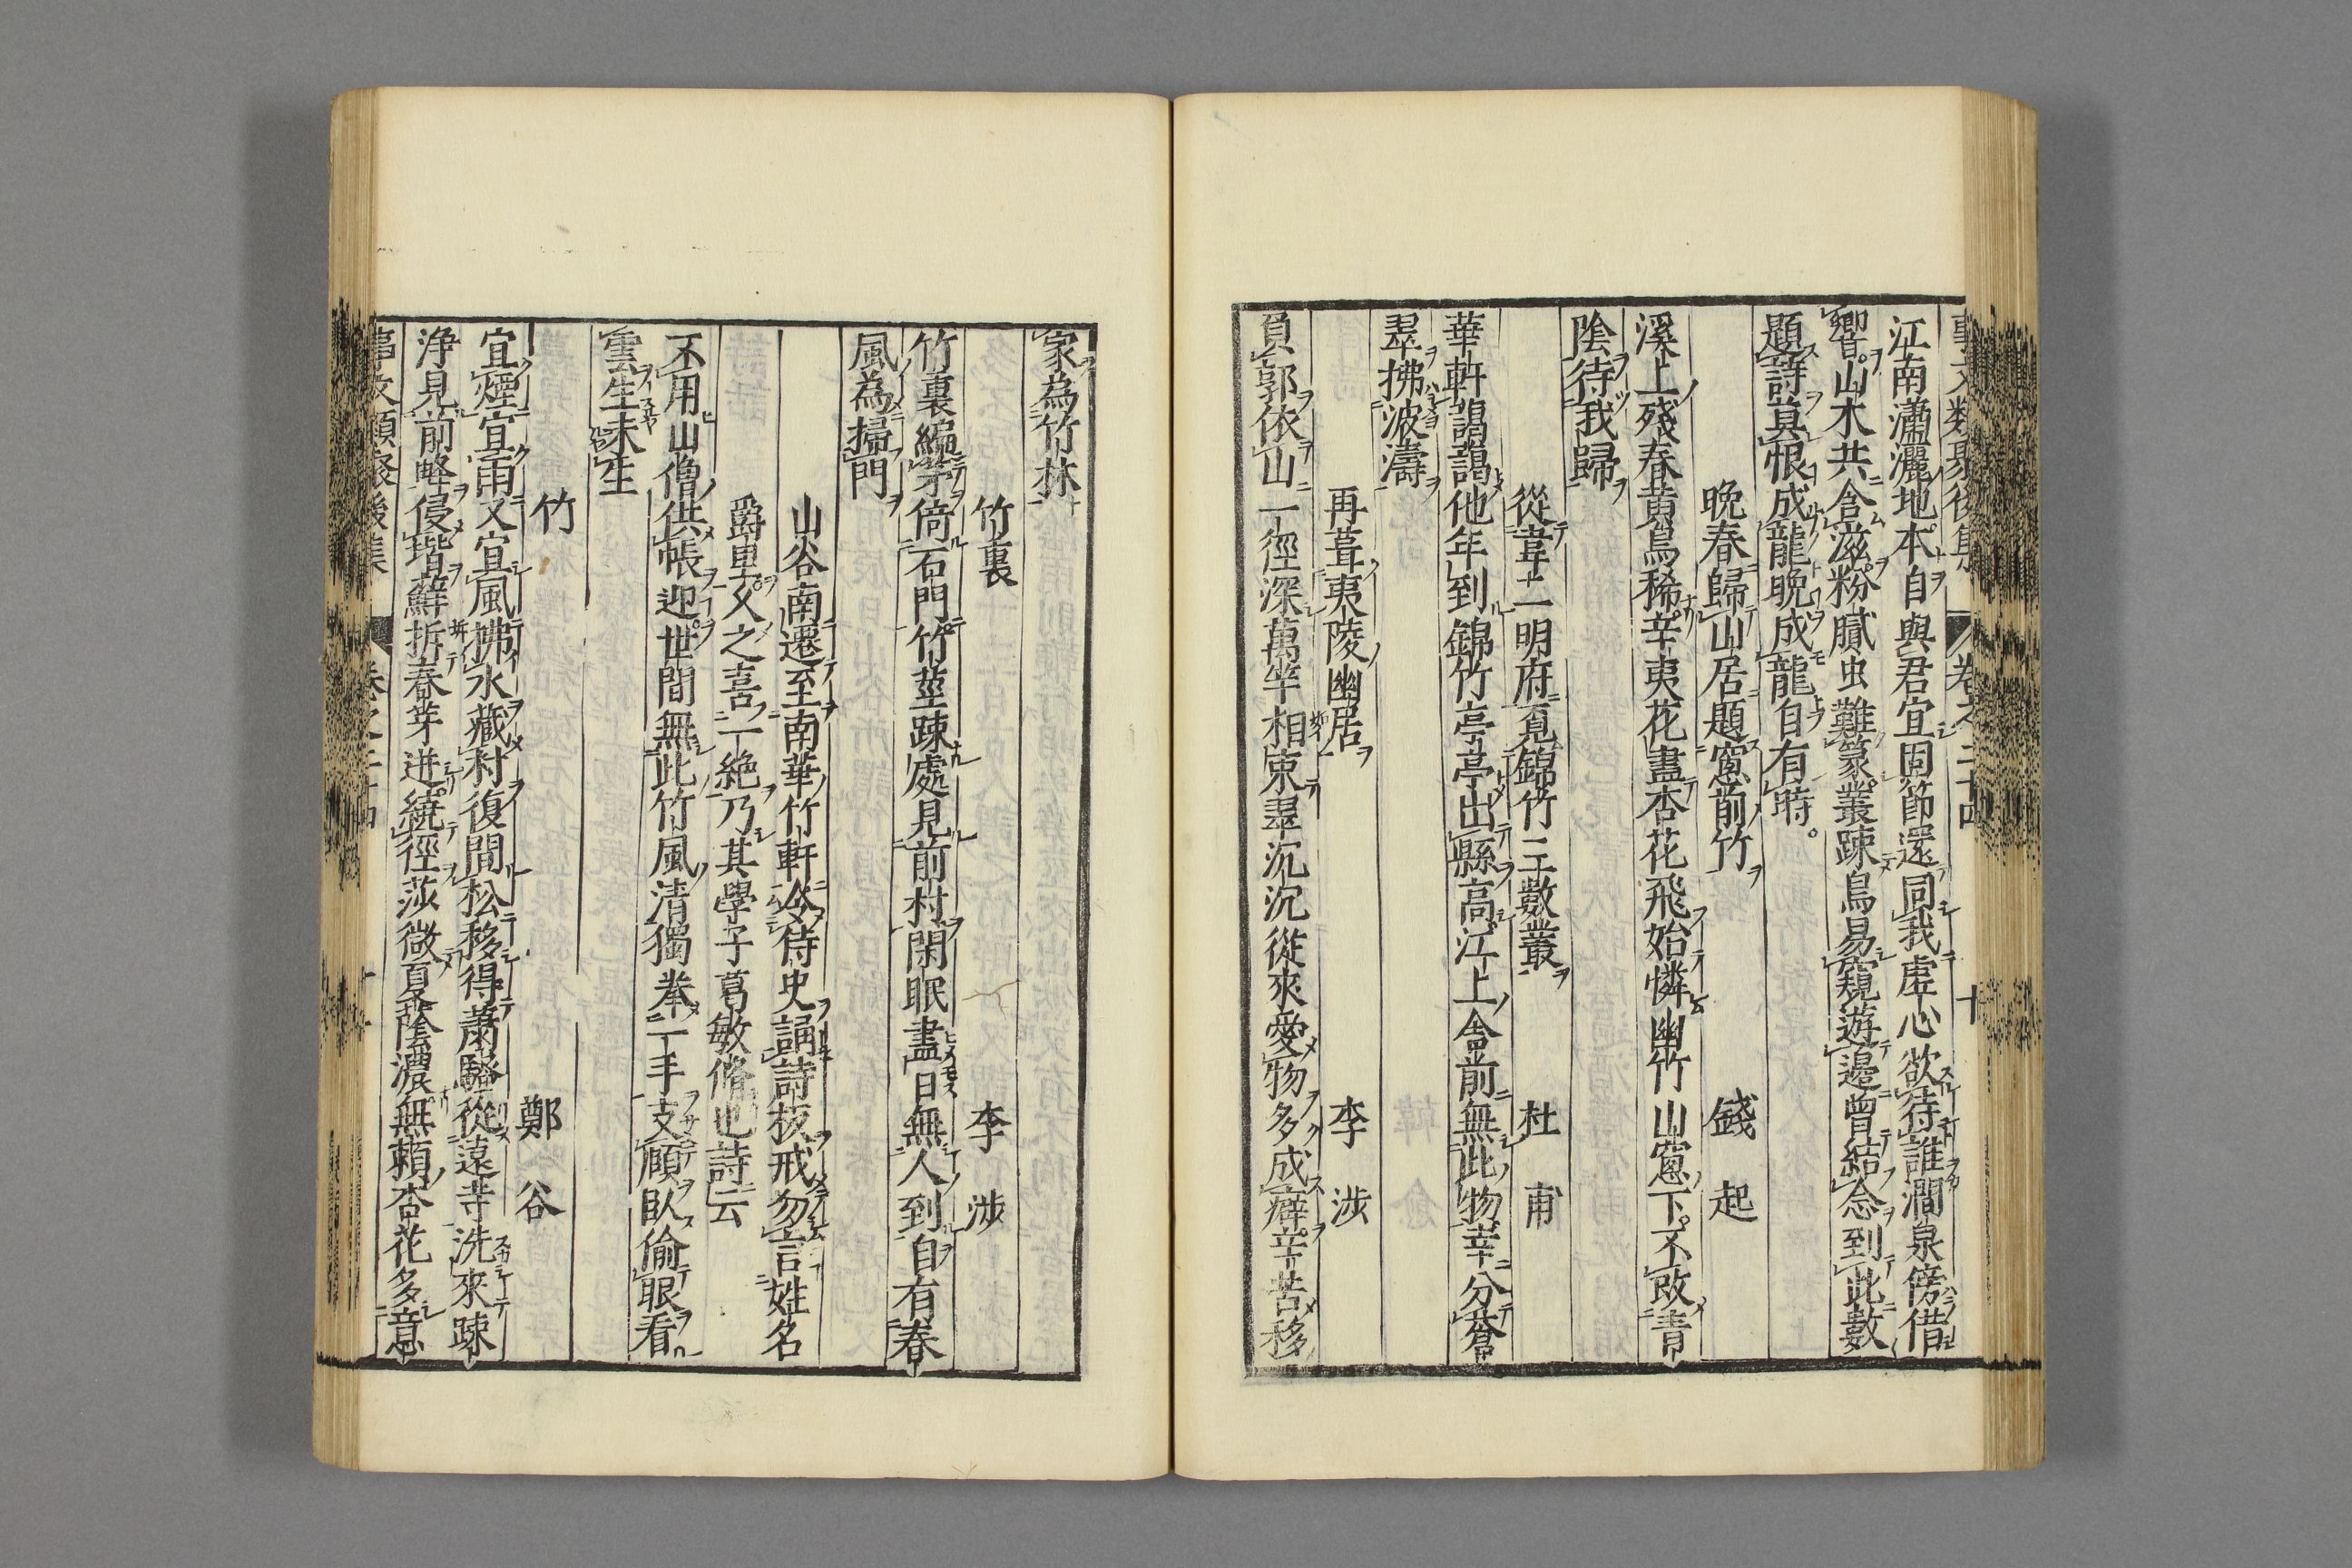 江南瀟灑地本自與君宜固節還同我虛心欲待誰澗泉傍借
響山木共含滋粉膩虫難篆叢踈鳥易窺遊邉曾結念到此數
題詩莫恨成龍晩成龍自有時。
晩春歸山居題窓前竹 錢起
溪上殘春黄鳥稀辛夷花盡杏花飛始憐幽竹山窓下不改青
陰待我歸
從韋二明府覓錦竹三數叢 杜甫
華軒謁謁他年到錦竹亭亭出縣高江上舍前無此物幸分蒼
翠拂波濤
再葺夷陵幽居 李涉
負郭依山一徑深萬竿相束翠沉沉從來愛物多成癖辛苦移
家為竹林
竹裏 李涉
竹裏編茅倚石門竹莖踈處見前村閑眠盡日無人到自有春
風為掃門
山谷南遷至南華竹軒令侍史誦詩板戒勿言姓名
爵里久之喜一絶乃其學子葛敏脩也詩云
不用山僧供帳迎世間無此竹風清獨拳一手支頤臥偷眼看
雲生未生
竹 鄭谷
宜煙宜雨又宜風拂水藏村復間松移得蕭騷從遠寺洗來踈
浄見前峰侵堦蘚拆春芽迸繞徑莎微夏陰濃無頼杏花多意